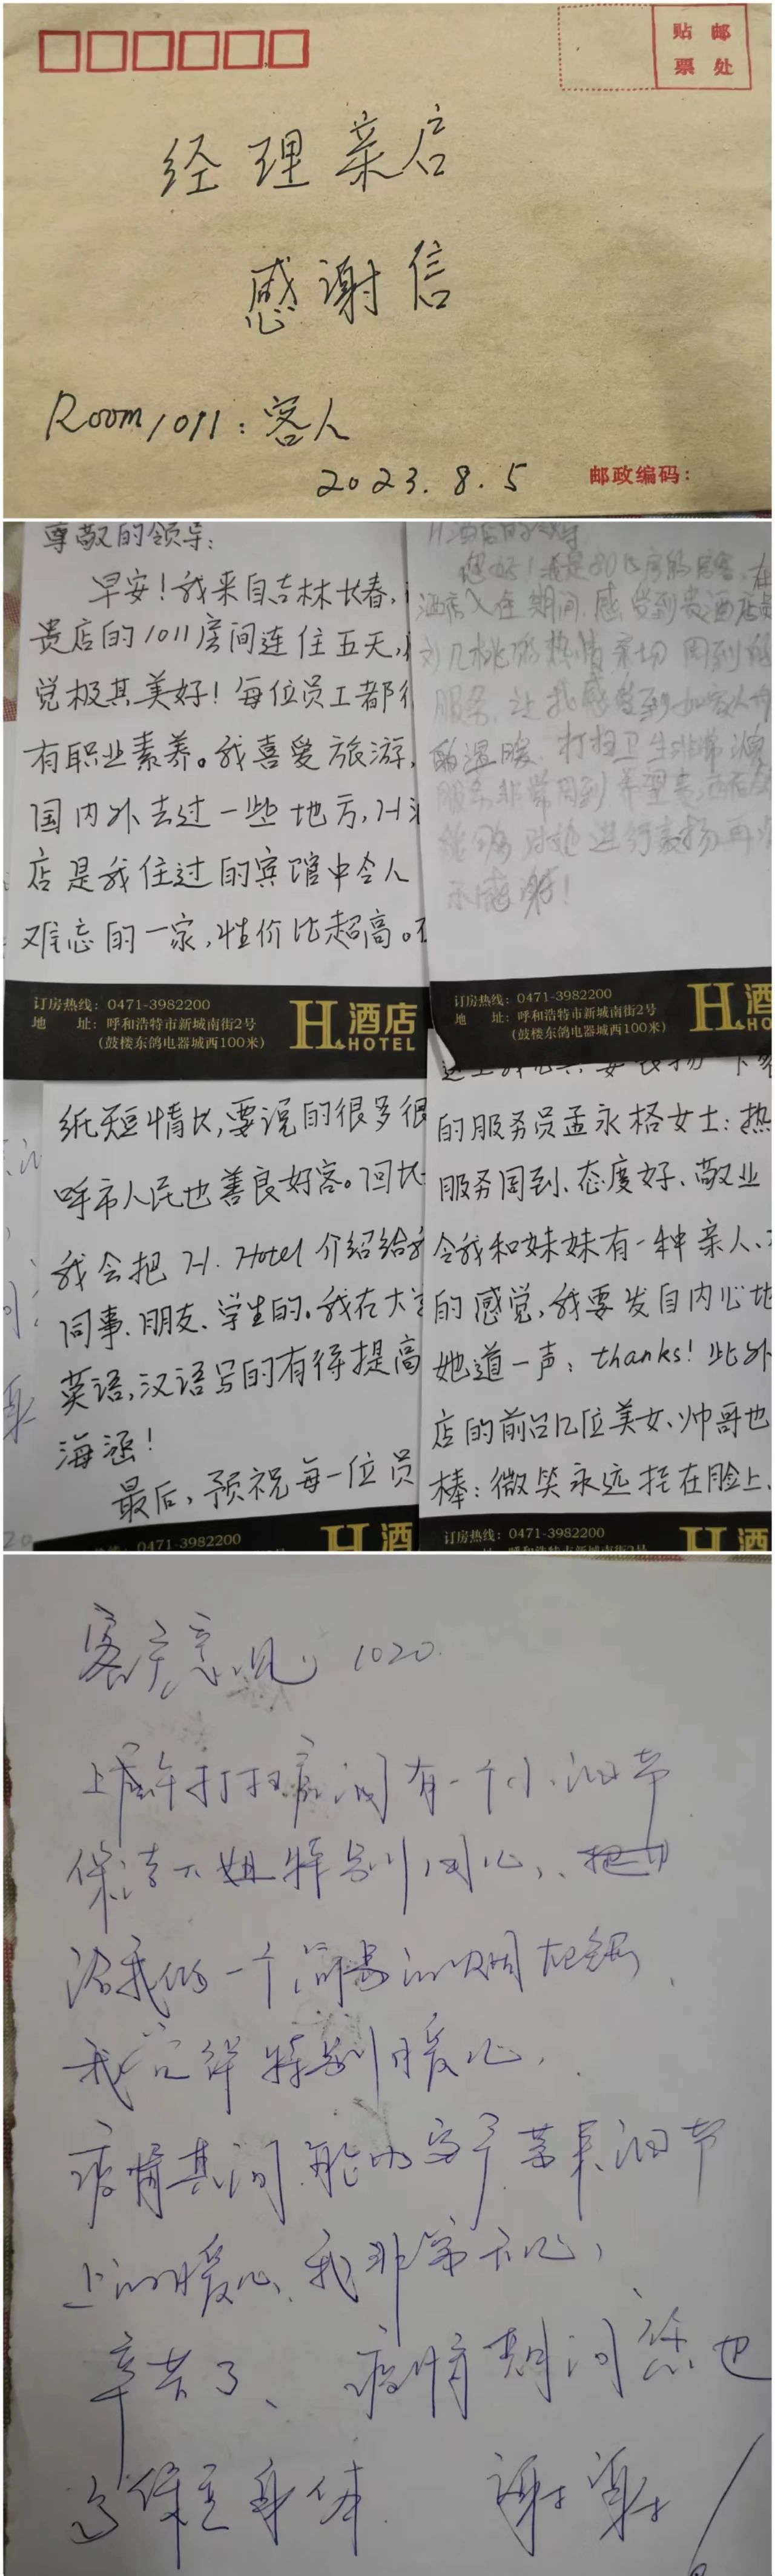 贴 邮
票 处
经理亲启
感谢信
Room1011：客人
2023.8.5
邮政编码：
尊敬的领导：
早安！我来自吉林长春，
贵店的1011房间连住五天，
觉极其美好！每位员工都
有职业素养。我喜爱旅游，
国内外去过一些地方，H
店是我住过的宾馆中令人
难忘的一家，性价比超高。
订房热线：0471-3982200
地 址：呼和浩特市新城南街2号
（鼓楼东鸽电器城西100米）
H酒店
HOTEL
您好！我是8015房的房客，在
酒店入住期间，感受到贵酒店
热情亲切 周到的
服务，让我感受到如家人
的温暖，打扫卫生非常
服务非常周到 希望贵酒店
对她进行表扬 再次
示感谢！
订房热线：0471-3982200
地 址：呼和浩特市新城南街2号
（鼓楼东鸽电器城西100米）
H酒
HO
纸短情长，要说的很多很
呼市人民也善良好客。回
我会把 H. Hotel 介绍给
同事、朋友、学生的。我在大
英语，汉语写的有待提高
海涵！
最后，预祝每一位员
0471-3982200
H酒
的服务员孟永格女士：热
服务周到、态度好、敬业
令我和妹妹有一种亲人、
的感觉，我要发自内心地
她道一声：thanks！此外
店的前台几位美女、帅哥也
棒：微笑永远挂在脸上、
订房热线：0471-3982200
H酒
客户意见 1020
上午打扫房间有一个小细节
保洁大姐特别用心，
给我们一个简易的烟灰缸
我觉得特别暖心，
疫情其间 能为客户带来细节
上的暖心、我非常开心，
辛苦了、疫情期间您也
保重身体 谢谢